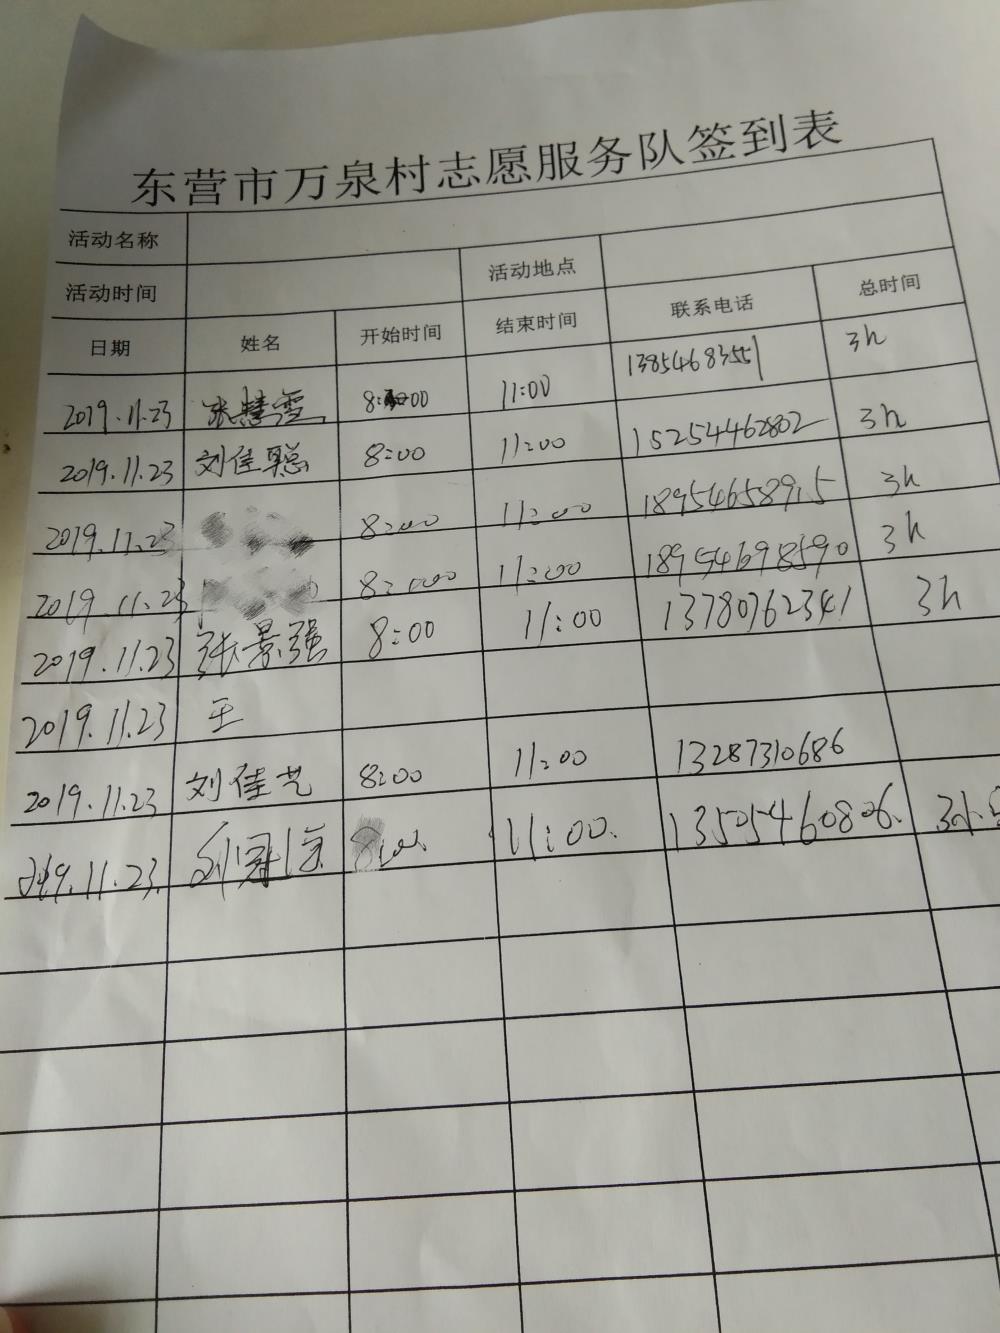 东营市万泉村志愿服务队签到表
活动名称
活动时间 活动地点
日期 姓名 开始时间 结束时间 联系电话 总时间
2019.11.23 张慧雪 8:00 11:00 13854683551 3h
2019.11.23 刘佳聪 8:00 11:00 15254462802 3h
2019.11.23 8:00 11:00 18954658915 3h
2019.11.23 8:00 11:00 18954698590 3h
2019.11.23 张景强 8:00 11:00 13780762341 3h
2019.11.23 王
2019.11.23 刘佳艺 8:00 11:00 13287310686
2019.11.23. 8:00. 11:00. 13505460806. 3小